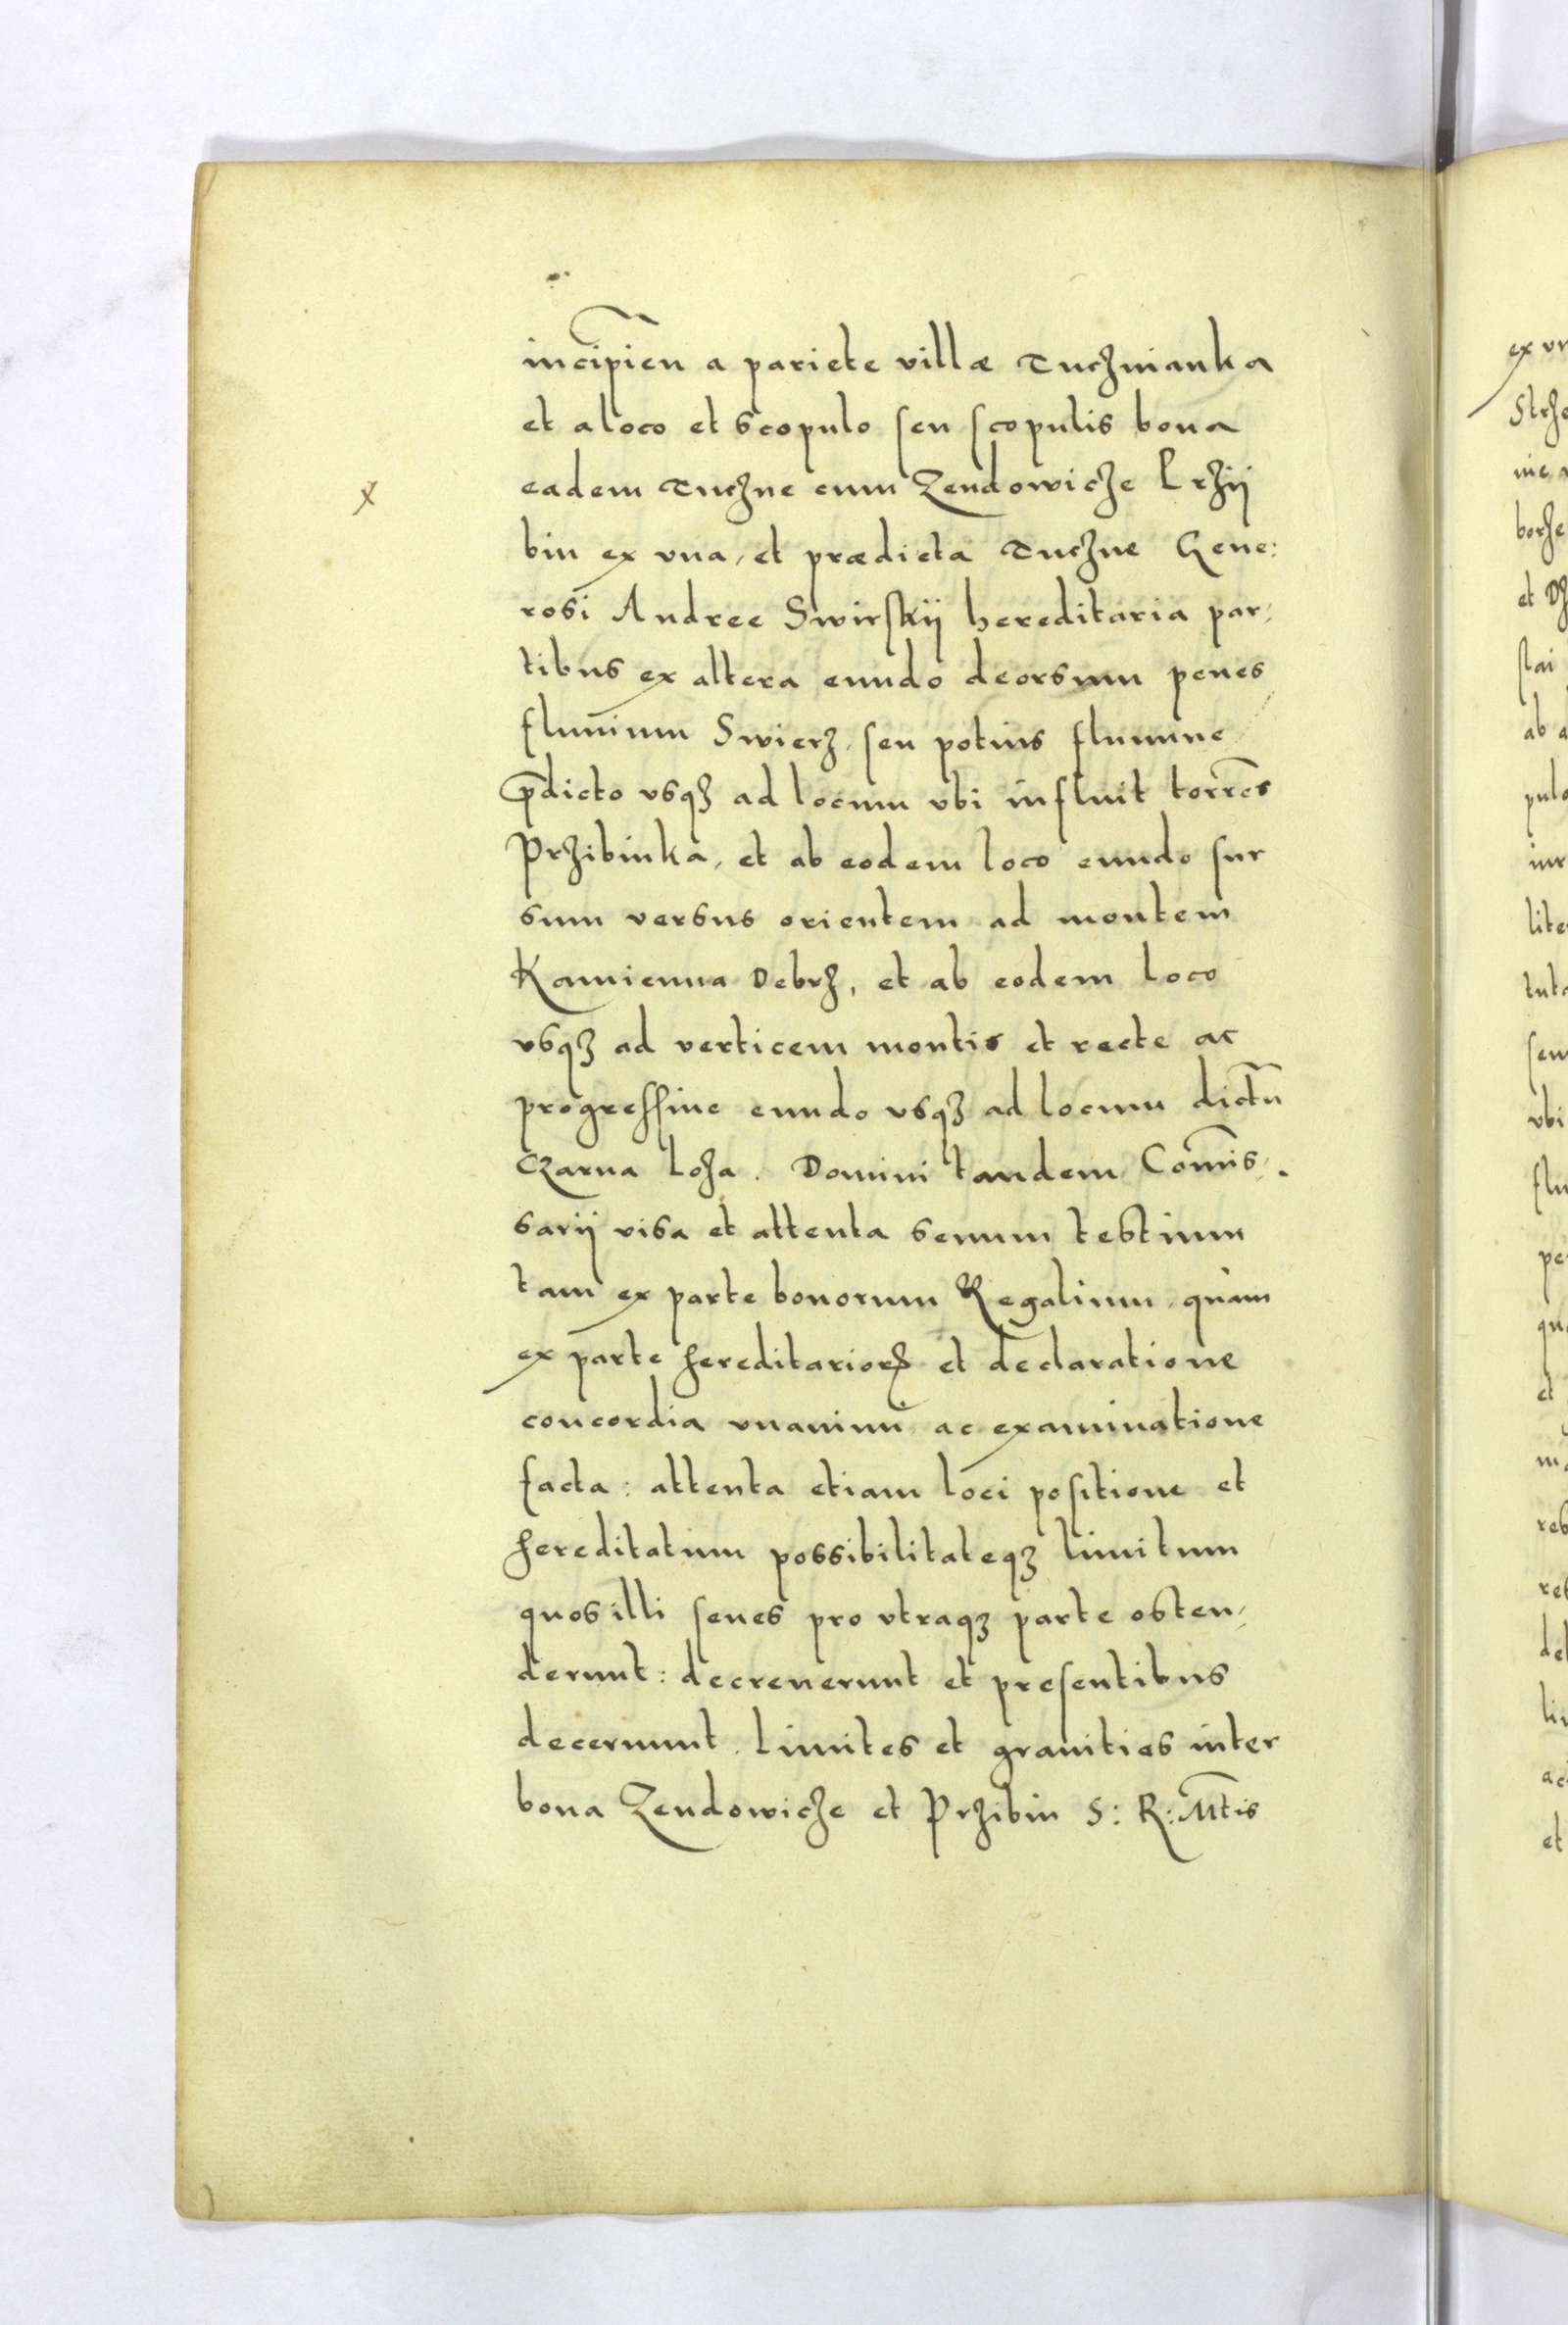 incipien a pariete villæ Tuchnianka
et a loco et scopulo seu scopulis bona
eadem Tuchne cum Zendowicze Prżij
bin ex vna, et prædicta Tuchne Gene:
rosi Andree Swirskij hereditaria par,
tibus ex altera eundo deorsum penes
fluuium Swierz, seu potius flumine
p̄dicto vsqꝫ ad locum vbi influit torrēs
Przibinka, et ab eodem loco eundo sur
sum versus orientem ad montem
Kamienna Debrz, et ab eodem loco
vsqꝫ ad verticem montis et recte ac
progressiue eundo vsqꝫ ad locum dictū
Czarna loza. Domini tandem Com̄is,
sarij visa et attenta senum testium
tam ex parte bonorum Regalium, quàm
ex parte hereditarioꝝ et declaratione
concordia vnanimi ac examinatione
facta: attenta etiam loci positione et
hereditatum possibilitateqꝫ limitum
quos illi senes pro vtraqꝫ parte osten,
derunt: decreuerunt et presentibus
decernunt. Limites et granities inter
bona Zendowicze et Przibin S: R: Mtis
x
ex vn
et
stai
ab a
pulo
lite
vbi
et
et